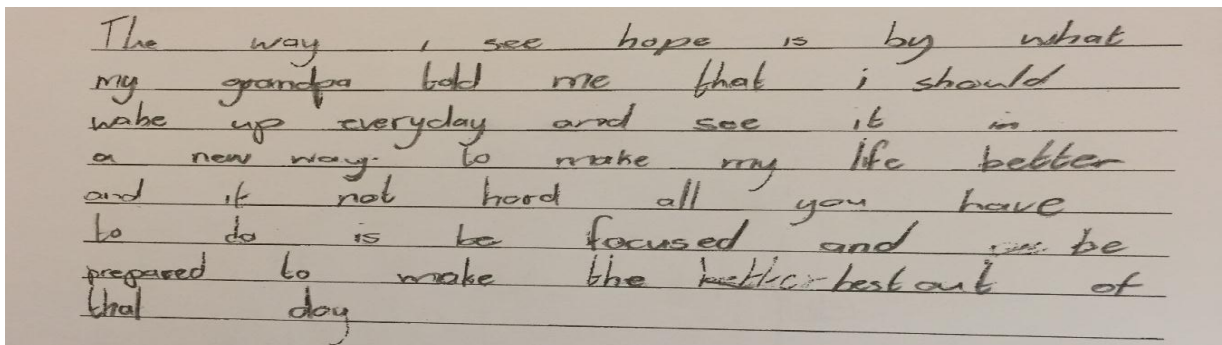 The way i see hope is by what
my grandpa told me that i should
wake up everyday and see it in
a new way. to make my life better
and it not hard all you have
to do is be focused and be
prepared to make the better best out of
that day